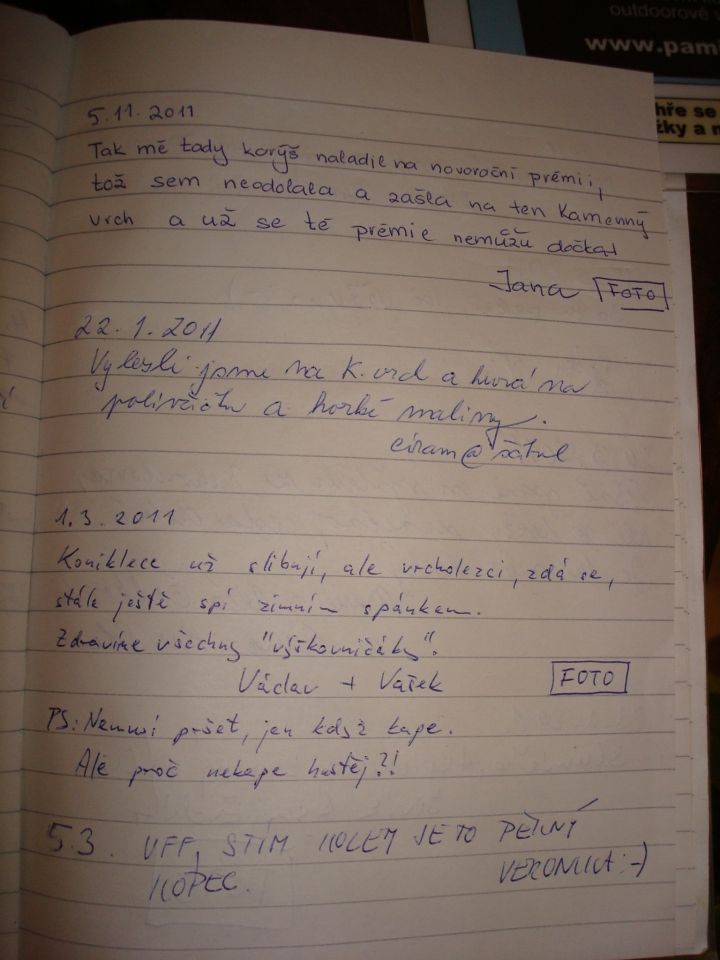 outdoorové
www.pam
hře se
žky a n
5.11.2011
Tak mě tady korýš naladil na novoroční prémii,
tož sem neodolala a zašla na ten Kamenný
vrch a už se té prémie nemůžu dočkat
Jana FOTO
22.1.2011
Vylezli jsme na K. vrch a hurá na
polívčičku a horké maliny.
1.3.2011
Koniklece už slibují, ale vrcholezci, zdá se,
stále ještě spí zimním spánkem.
Zdravíme všechny "výškovničáky".
Václav + Vašek FOTO
PS: Nemusí pršet, jen když kape.
Ale proč nekape hustěj?!
5.3. UFF, STÍM KOLEM JE TO PĚKNÝ
KOPEC. VERONIKA :-)